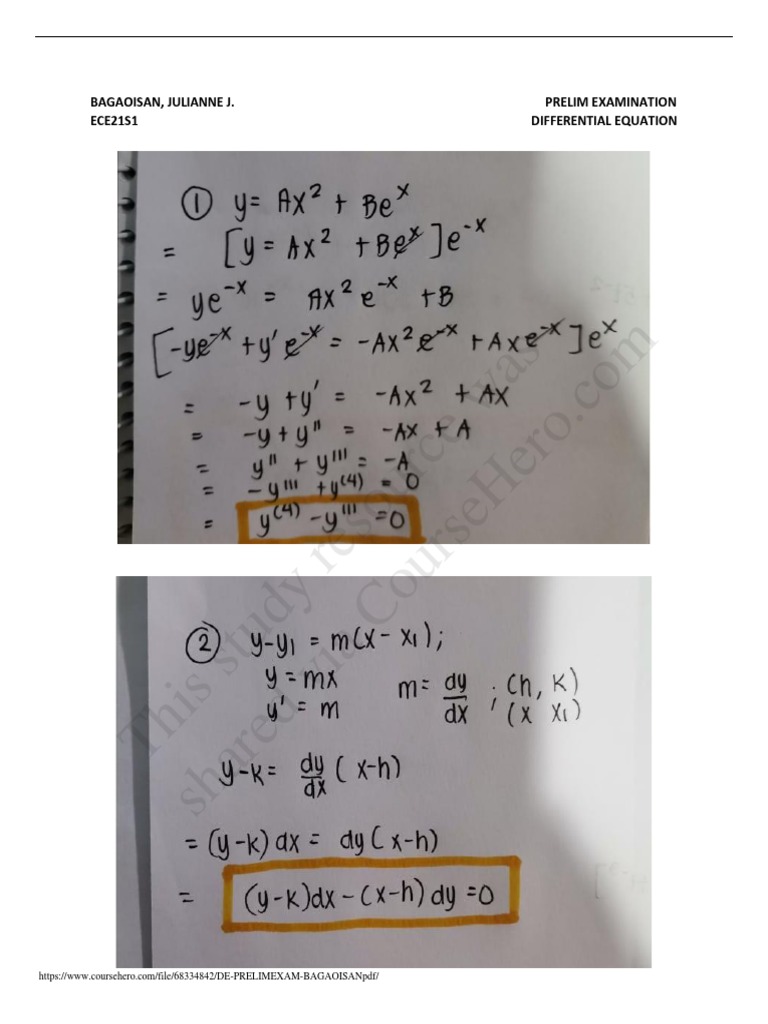 BAGAOISAN, JULIANNE J. PRELIM EXAMINATION
ECE21S1 DIFFERENTIAL EQUATION
① y = Ax² + Be^x
= [y = Ax² + Be^x]e^-x
= ye^-x = Ax²e^-x + B
[-ye^-x + y'e^-x = -Ax²e^-x + Axe^-x]e^x
= -y + y' = -Ax² + Ax
= -y + y'' = -Ax + A
= y'' + y''' = -A
= -y''' + y^(4) = 0
= y^(4) - y''' = 0
② y-y₁ = m(x-x₁);
y = mx m = dy/dx ; (h, k)
y' = m (x x₁)
y-k = dy/dx (x-h)
= (y-k)dx = dy(x-h)
= (y-k)dx - (x-h)dy = 0
This study resource was
shared via CourseHero.com
https://www.coursehero.com/file/68334842/DE-PRELIMEXAM-BAGAOISANpdf/